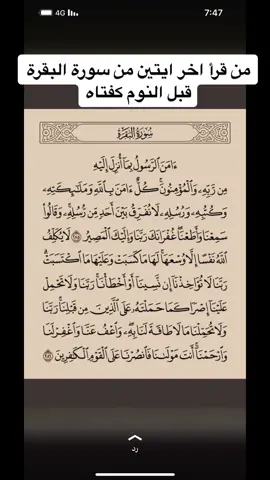 4G
7:47
من قرأ اخر ايتين من سورة البقرة
قبل النوم كفتاه
سُورَةُ البَقَرَةِ
ءَامَنَ ٱلرَّسُولُ بِمَآ أُنزِلَ إِلَيْهِ
مِن رَّبِّهِۦ وَٱلْمُؤْمِنُونَۚ كُلٌّ ءَامَنَ بِٱللَّهِ وَمَلَـٰٓئِكَتِهِۦ
وَكُتُبِهِۦ وَرُسُلِهِۦ لَا نُفَرِّقُ بَيْنَ أَحَدٍ مِّن رُّسُلِهِۦۚ وَقَالُوا۟
سَمِعْنَا وَأَطَعْنَاۖ غُفْرَانَكَ رَبَّنَا وَإِلَيْكَ ٱلْمَصِيرُ ٢٨٥ لَا يُكَلِّفُ
ٱللَّهُ نَفْسًا إِلَّا وُسْعَهَاۚ لَهَا مَا كَسَبَتْ وَعَلَيْهَا مَا ٱكْتَسَبَتْۗ
رَبَّنَا لَا تُؤَاخِذْنَآ إِن نَّسِينَآ أَوْ أَخْطَأْنَاۚ رَبَّنَا وَلَا تَحْمِلْ
عَلَيْنَآ إِصْرًا كَمَا حَمَلْتَهُۥ عَلَى ٱلَّذِينَ مِن قَبْلِنَاۚ رَبَّنَا
وَلَا تُحَمِّلْنَا مَا لَا طَاقَةَ لَنَا بِهِۦۖ وَٱعْفُ عَنَّا وَٱغْفِرْ لَنَا
وَٱرْحَمْنَآۚ أَنتَ مَوْلَىٰنَا فَٱنصُرْنَا عَلَى ٱلْقَوْمِ ٱلْكَـٰفِرِينَ ٢٨٦
رد